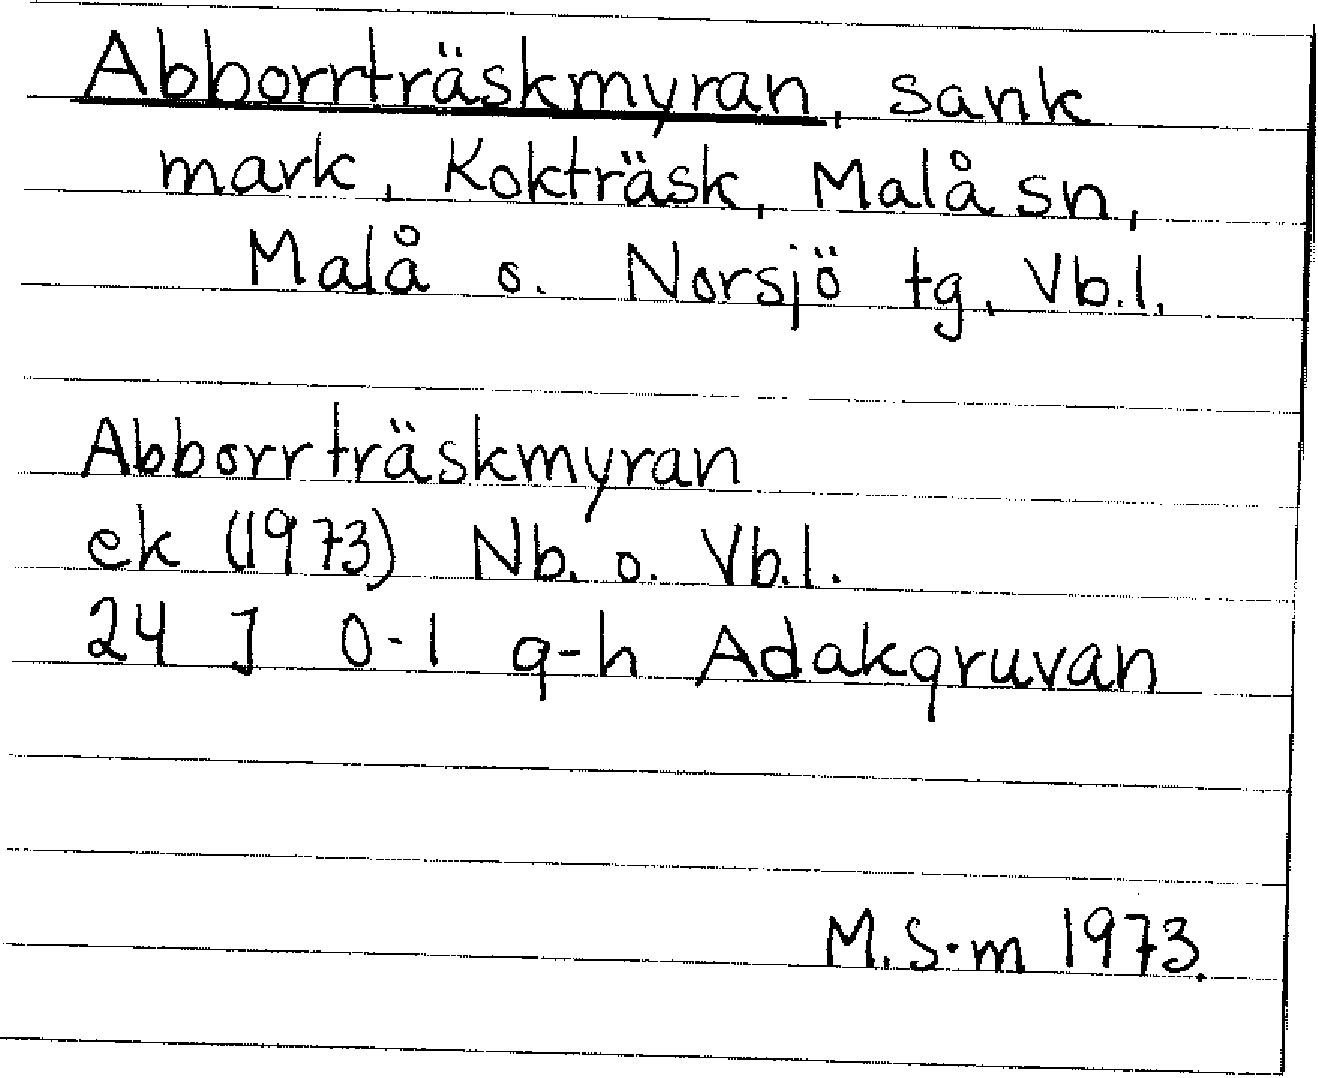 Abborrträskmyran, sank
mark, Kokträsk, Malå sn,
Malå o. Norsjö tg, Vb.l.
Abborrträskmyran
ek (1973) Nb. o. Vb.l.
24 J 0-1 g-h Adakgruvan
M.S·m 1973.